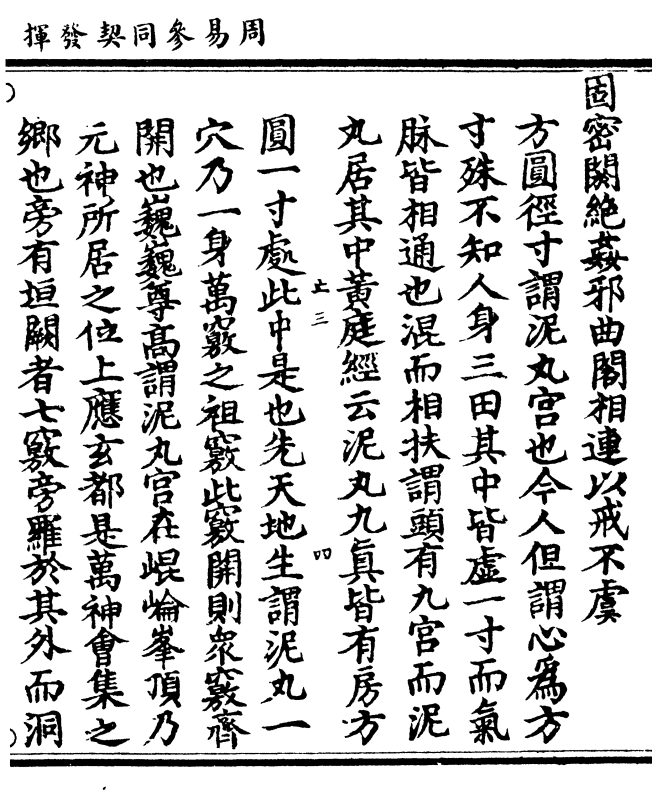 周易參同契發揮
固密關絶姦邪曲閣相連以戒不虞
方圓徑寸謂泥丸宮也今人但謂心爲方
寸殊不知人身三田其中皆虛一寸而氣
脉皆相通也混而相扶謂頭有九宮而泥
丸居其中黃庭經云泥丸九眞皆有房方
圓一寸處此中是也先天地生謂泥丸一
穴乃一身萬竅之祖竅此竅開則衆竅齊
開也巍巍尊高謂泥丸宮在崐崘峯頂乃
元神所居之位上應玄都是萬神會集之
鄉也旁有垣闕者七竅旁羅於其外而洞
止三
四